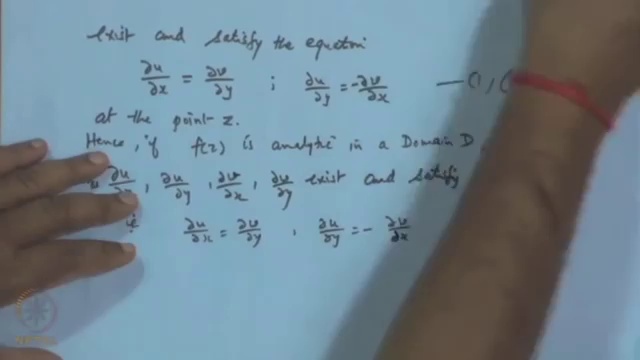 exist and satisfy the equation
∂u/∂x = ∂v/∂y ; ∂u/∂y = -∂v/∂x — (1)
at the point z.
Hence, if f(z) is analytic in a Domain D,
∂u/∂x, ∂u/∂y, ∂v/∂x, ∂v/∂y exist and satisfy
∂u/∂x = ∂v/∂y , ∂u/∂y = - ∂v/∂x